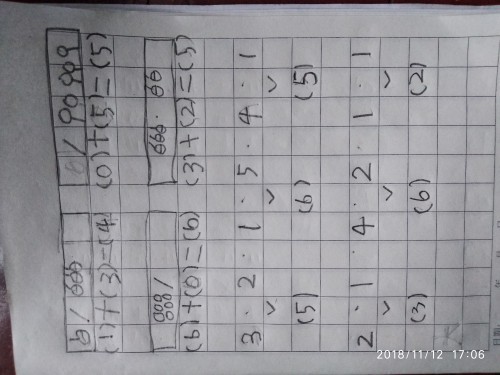 (1)+(3)=(4 (0)+(5)=(5)
(6)+(0)=(6) (3)+(2)=(5)
3 · 2 1 · 5 4 · 1
(5) (6) (5)
2 · 1 4 · 2 1 · 1
(3) (6) (2)
2018/11/12 17:06